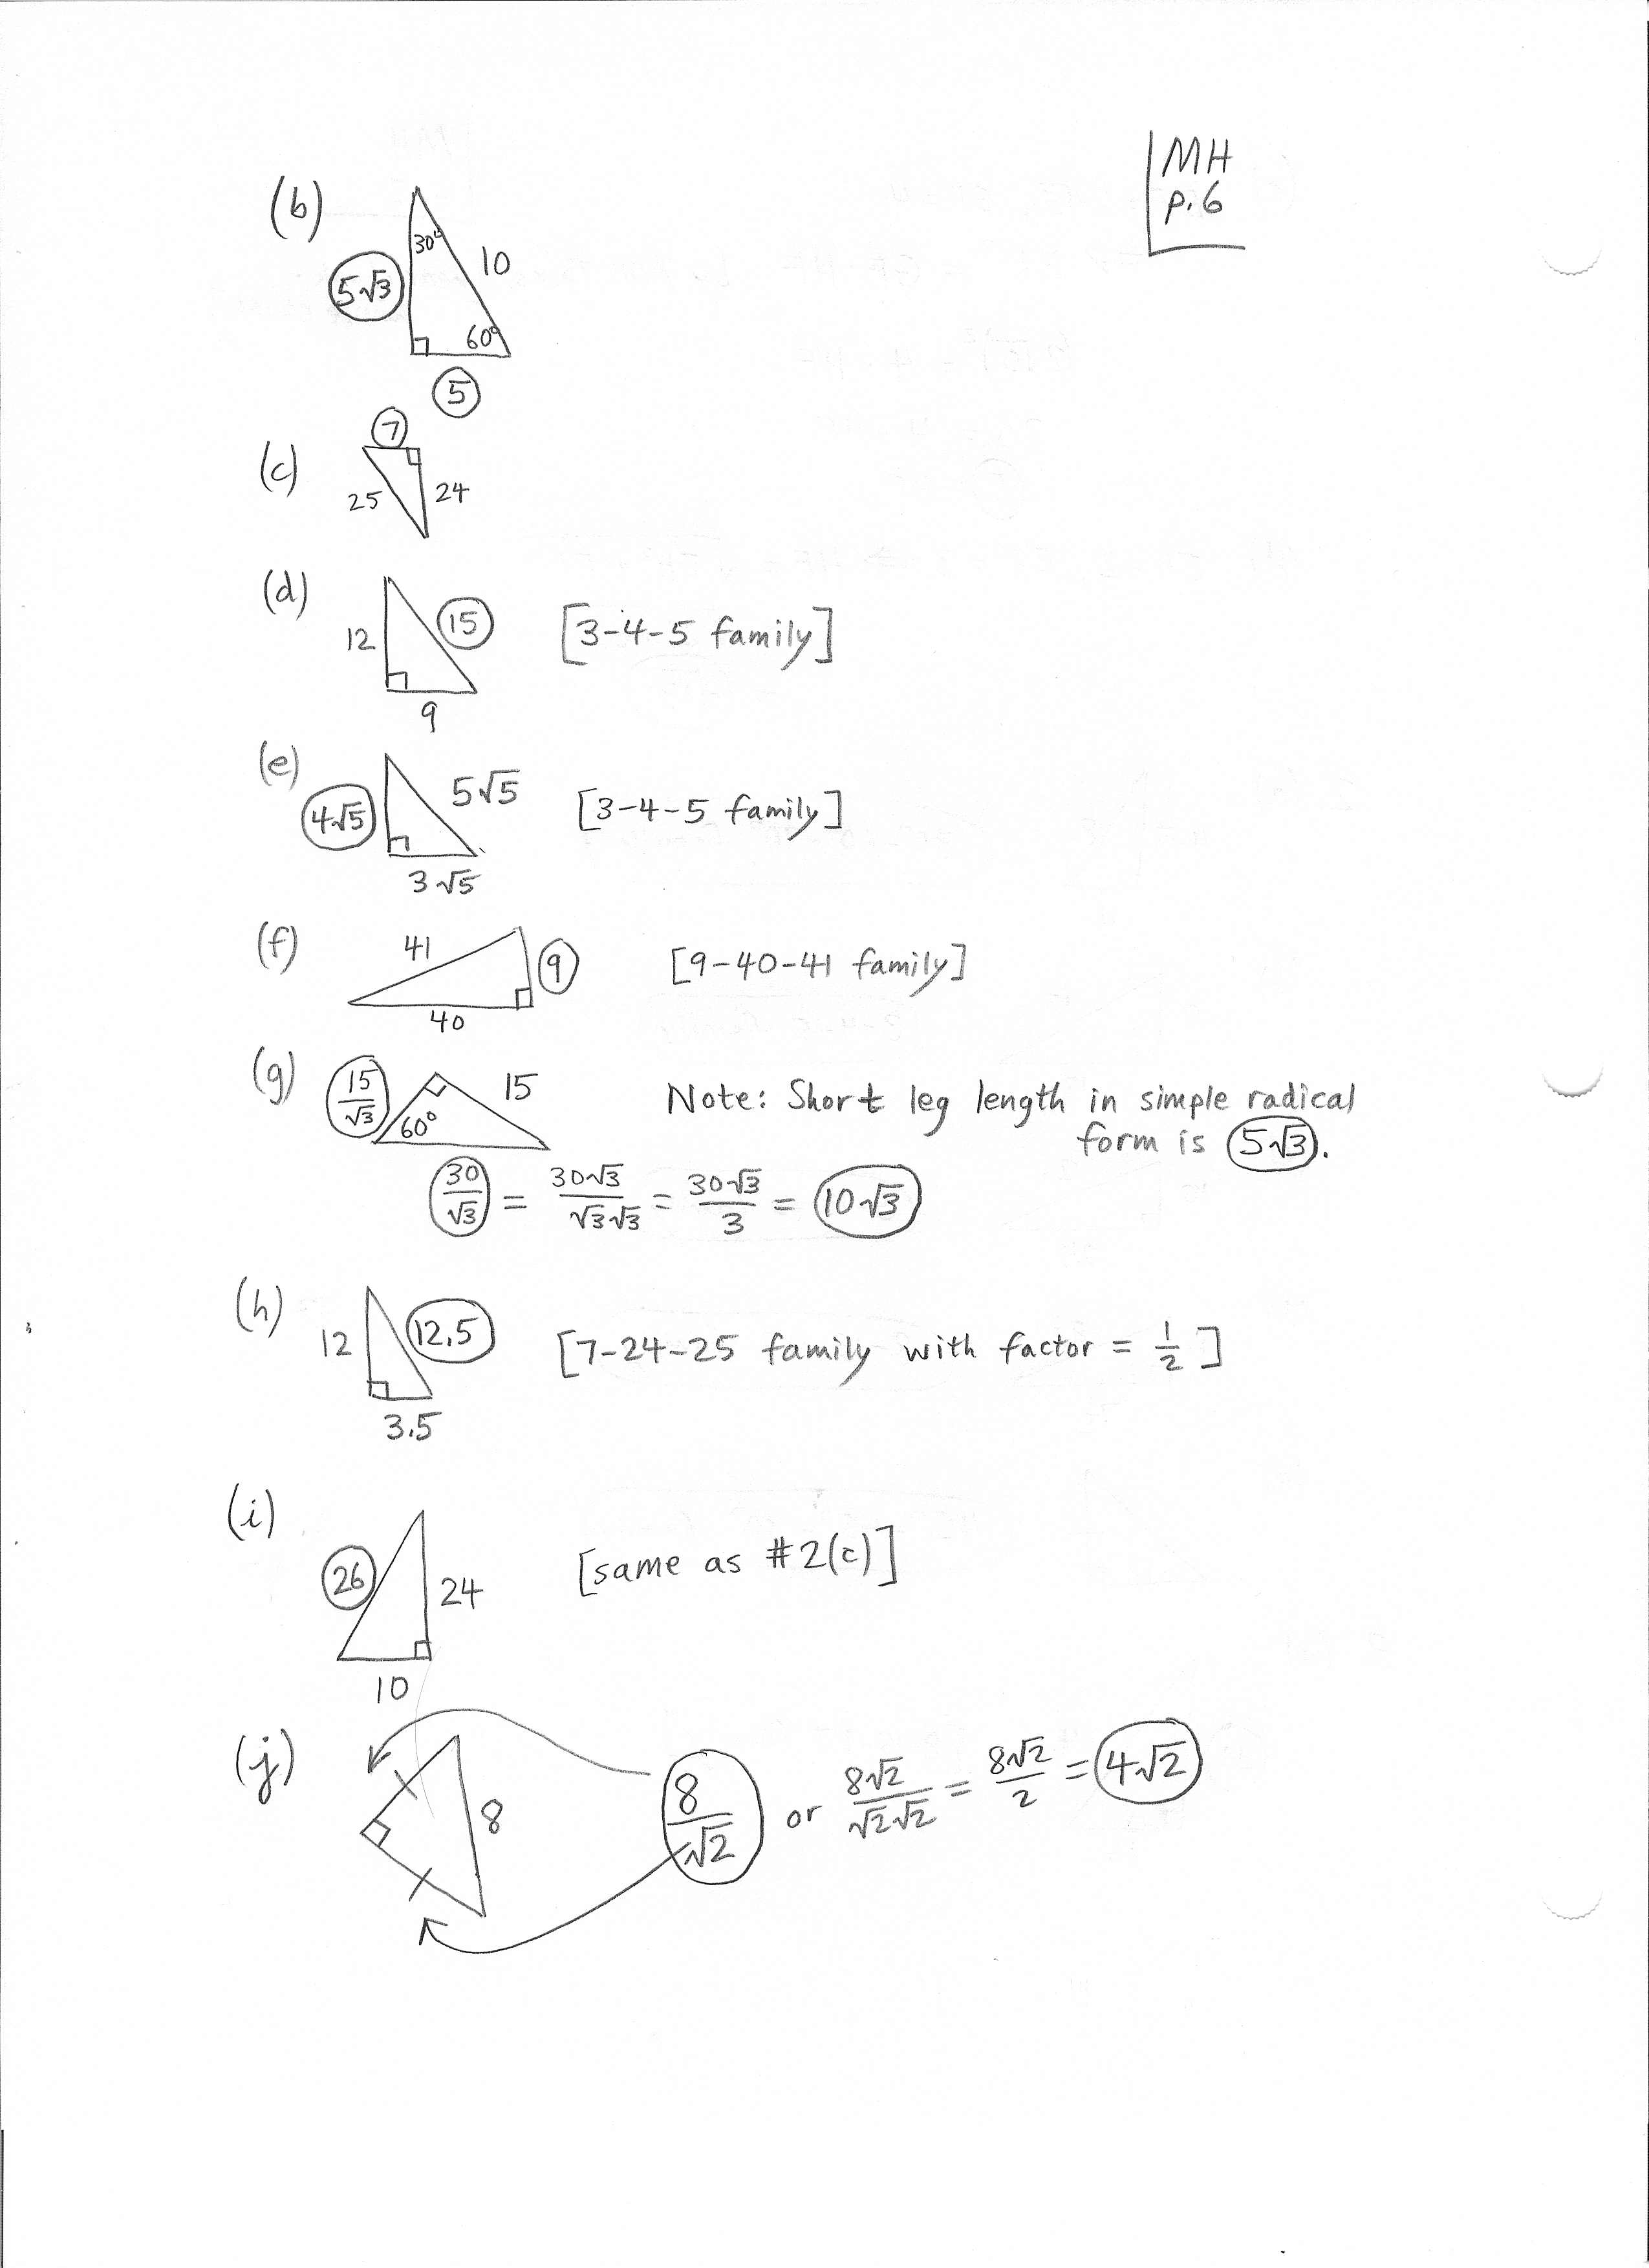 MH
p.6
(b)
30°
10
5√3
60°
5
(c)
7
25
24
(d)
12
15
[3-4-5 family]
9
(e)
4√5
5√5
[3-4-5 family]
3√5
(f)
41
9
[9-40-41 family]
40
(g)
15/√3
15
60°
Note: Short leg length in simple radical
form is 5√3.
30/√3 = 30√3/√3√3 = 30√3/3 = 10√3
(h)
12
12.5
[7-24-25 family with factor = 1/2]
3.5
(i)
26
24
[same as #2(c)]
10
(j)
8
8/√2 or 8√2/√2√2 = 8√2/2 = 4√2